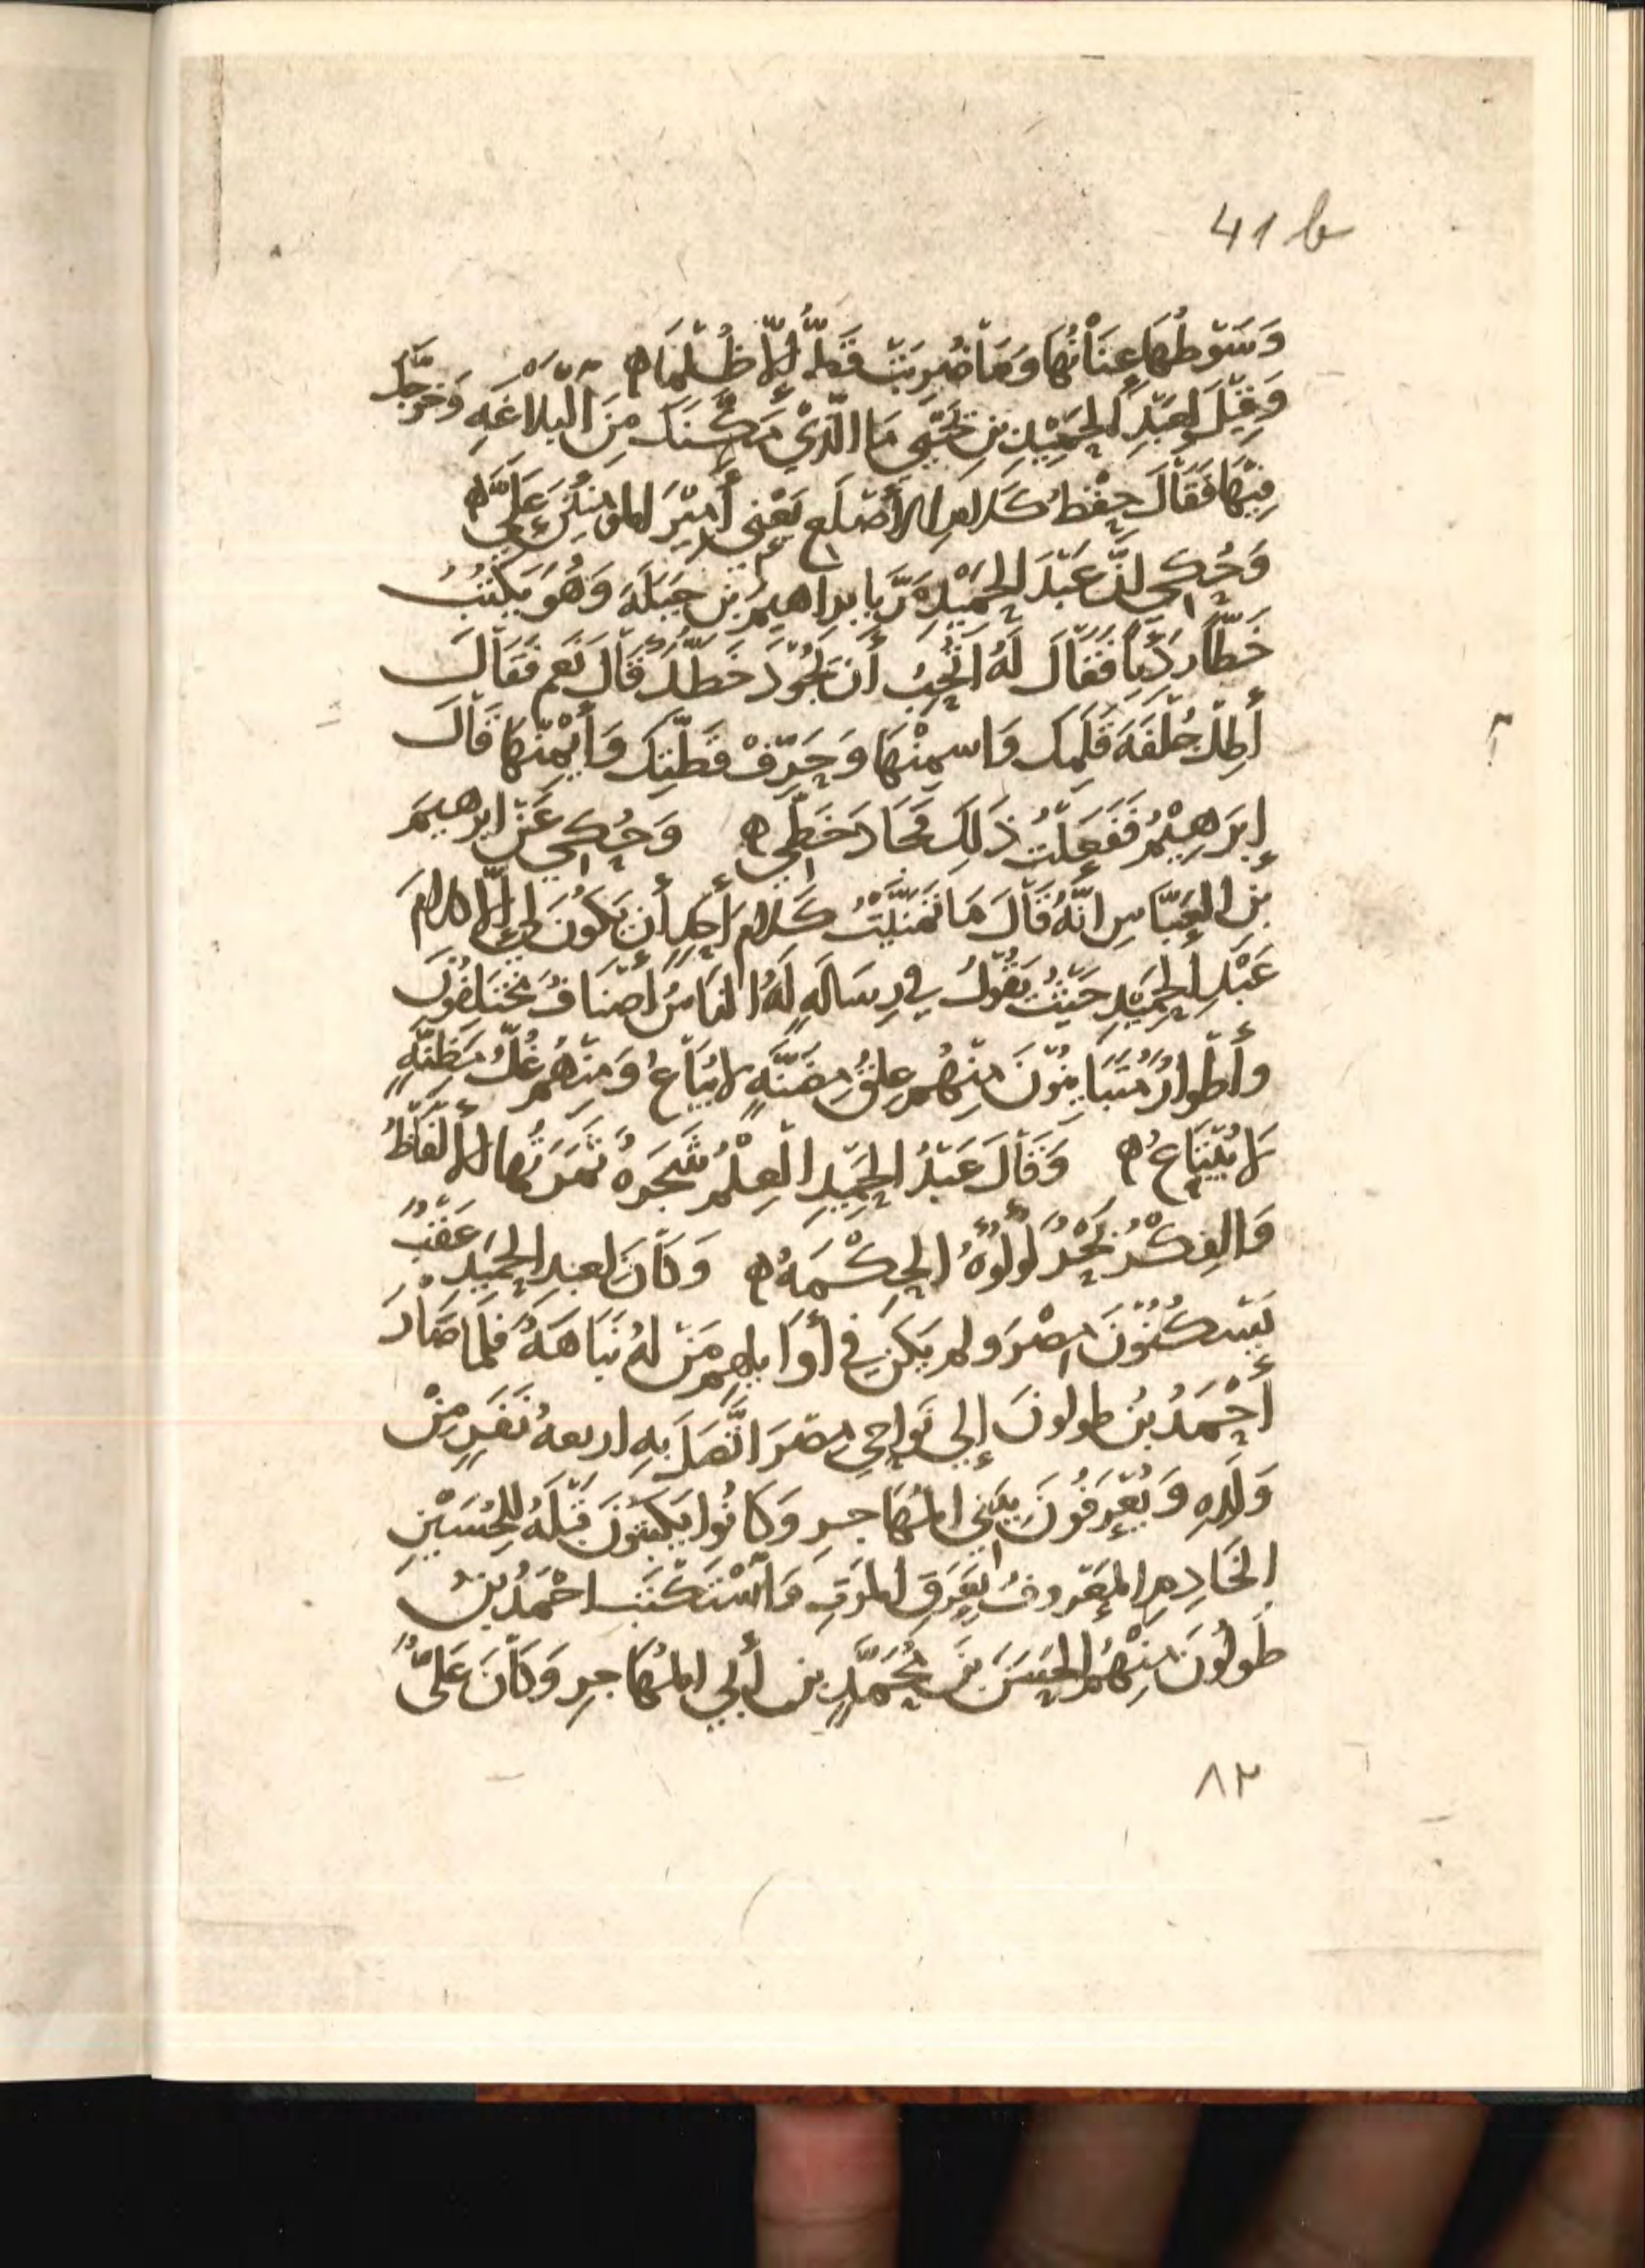 41 b
وَسَوْطُهَا عِنَانُهَا وَمَا ضُرِبَتْ قَطُّ إِلَّا ظُلْمًا ه
وَقِيْلَ لِعَبْدِ الحَمِيْدِ بْنِ يَحْيَى مَا الَّذِيْ مَكَّنَكَ مِنَ الْبَلَاغَهِ وَخَرَّجَكَ
فِيْهَا فَقَالَ حِفْظُ كَلَامِ الأَصْلَعِ يَعْنِي أَمِيْرَ المؤمِنِيْنَ عَلِيّ ه
وَحُكِيَ انَّ عَبْدَ الحَمِيْدِ مَرَّ بابراهيمَ بْنِ جَبَلَةَ وَهُوَ يَكْتُبُ
خَطًّا رَدِيًّا فَقَالَ لَهُ اتُحِبُ أَنْ تُجَوِّدَ خَطَّكَ قَالَ نَعَم فَقَالَ
أَطِلْ جُلْفَهَ قَلَمِكَ وَاسمِنْهَا وَحَرِّفْ قَطَّتَكَ وَأَيْمِنْهَا قَالَ
إِبرَهِيْمُ فَفَعَلْتُ ذَلِكَ فجَادَ خَطِّي ه وَحُكِيَ عَنْ ابرهيمَ
بْنِ العَبَّاسِ انَّهُ قَالَ مَا تَمَنَّيْتُ كَلَامَ أَحَدٍ أَنْ يَكُونَ لِي إِلَّا كلامَ
عَبْدِ الحَمِيْدِ حَيْثُ يَقُوْلُ فِي رِسَالَهٍ لَهُ النَاسُ أَصْنَافٌ مُخْتَلِفُوْنَ
وأَطْوَارٌ مُتَبَايِنُوْنَ مِنْهُمْ عِلْقُ مَضَنَّهٍ لا يُبَاعُ وَمِنْهُمْ غُلُّ مَظِنَّهٍ
لَا يُبْتَاعُ ه وَقَالَ عَبْدُ الحَمِيْدِ الْعِلْمُ شَجَرَهٌ ثَمَرَتُهَا الأَلْفَاظُ
وَالفِكْرُ بَحْرٌ لُوْلُؤُهُ الحِكْمَهُ ه وَكَانَ لعبدِ الحَمِيْدِ عَقْبٌ
يَسْكُنُوْنَ مِصْرَ وَلم يَكُنْ فِي أَوَايلِهِمْ مَنْ لهُ نَبَاهَهٌ فَلَمَّا صَارَ
أَحْمَدُ بْنُ طولونَ إِلى نَوَاحِي مِصْرَ اتَّصَلَ بِهِ اربعهُ نَفَرٍ مِنْ
وَلَدِهِ وَيُعْرَفُوْنَ بِبَنِي المُهَاجِرِ وَكَانُوا يَكْتُبُوْنَ قَبْلَهُ لِلحُسَيْنِ
الخَادِمِ المَعْرُوفُ بِعَرَقِ المَوْتِ فَاسْتَكْتَبَ احْمَدُ بْنُ
طُولُونَ مِنْهُمُ الحَسَنَ بْنَ مُحَمَّدِ بن أَبي المُهَاجِرِ وَكَانَ عَلِيٌّ
٨٢